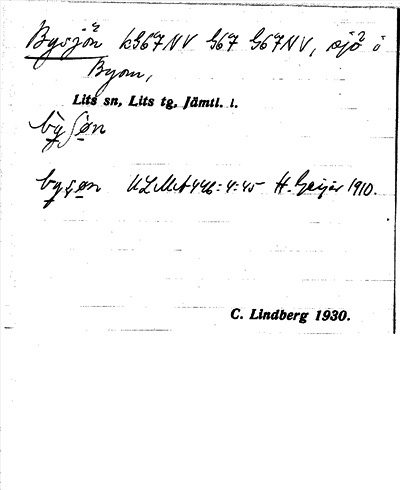 Bysjön kG67NV G67 G67NV, sjö i
Byom,
Lits sn, Lits tg, Jämtl. l.
ULMA 446:4:45 H. Geijer 1910.
C. Lindberg 1930.